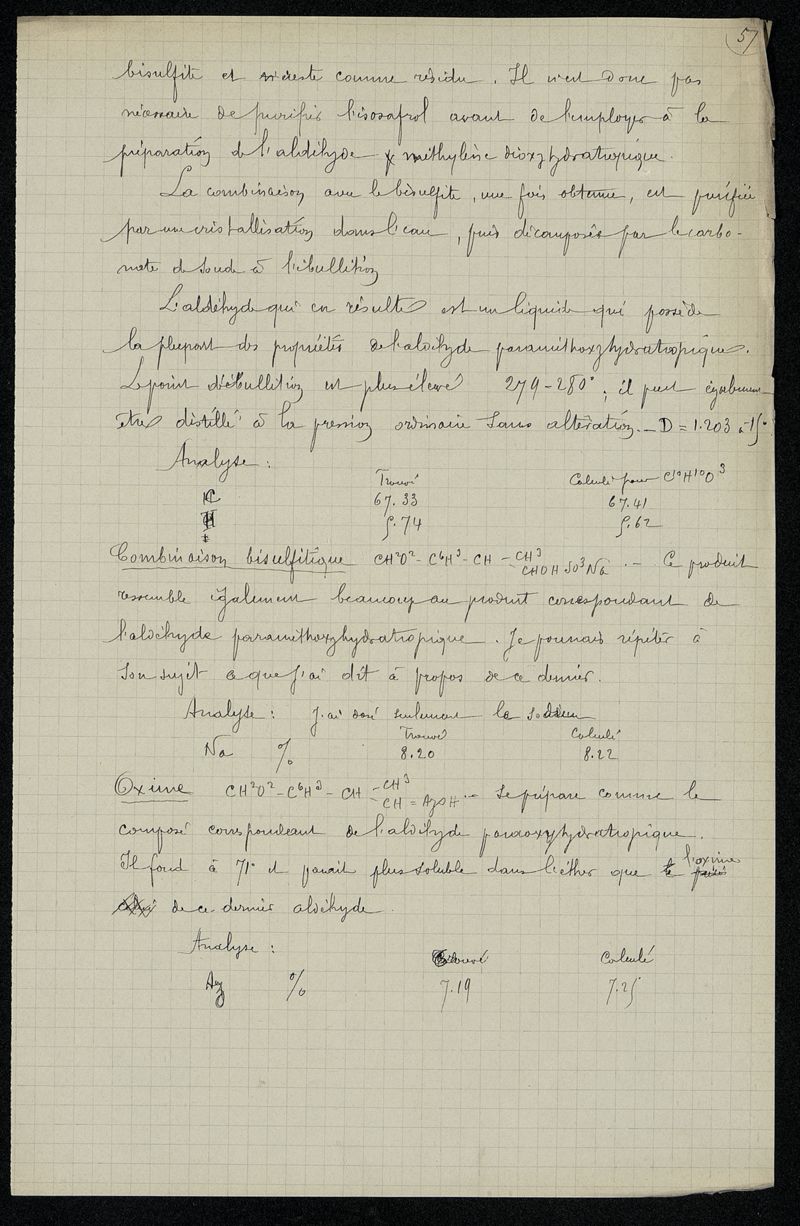 5
bisulfite et reste comme résidu. Il n'est donc pas
nécessaire de purifier l'isosafrol avant de l'employer à la
préparation de l'aldéhyde méthylène dioxyhydratropique.
La combinaison avec le bisulfite, une fois obtenue, est purifiée
par une cristallisation dans l'eau, puis décomposée par le carbo-
nate de soude à l'ébullition
L'aldéhyde qui en résulte est un liquide qui possède
la plupart des propriétés de l'aldéhyde paraméthoxyhydratropique.
Le point d'ébullition est plus élevé 279-280°; il peut également
être distillé à la pression ordinaire sans altération. — D = 1.203 à 15°
Analyse :
Trouvé Calculé pour C¹⁰H¹⁰O³
C 67.33 67.41
H 5.74 5.62
Combinaison bisulfitique CH²O²-C⁶H³-CH -CH³ -CHOH SO³Na .- Ce produit
ressemble également beaucoup au produit correspondant de
l'aldéhyde paraméthoxyhydratropique. Je pourrais répéter à
son sujet ce que j'ai dit à propos de ce dernier.
Analyse : J'ai dosé seulement le sodium
Trouvé Calculé
Na % 8.20 8.22
Oxime CH²O²-C⁶H³-CH -CH³ -CH=AzOH .- Se prépare comme le
composé correspondant de l'aldéhyde paraoxyhydratropique.
Il fond à 71° et parait plus soluble dans l'éther que l'oxime
de ce dernier aldéhyde.
Analyse :
Trouvé Calculé
Az % 7.19 7.25